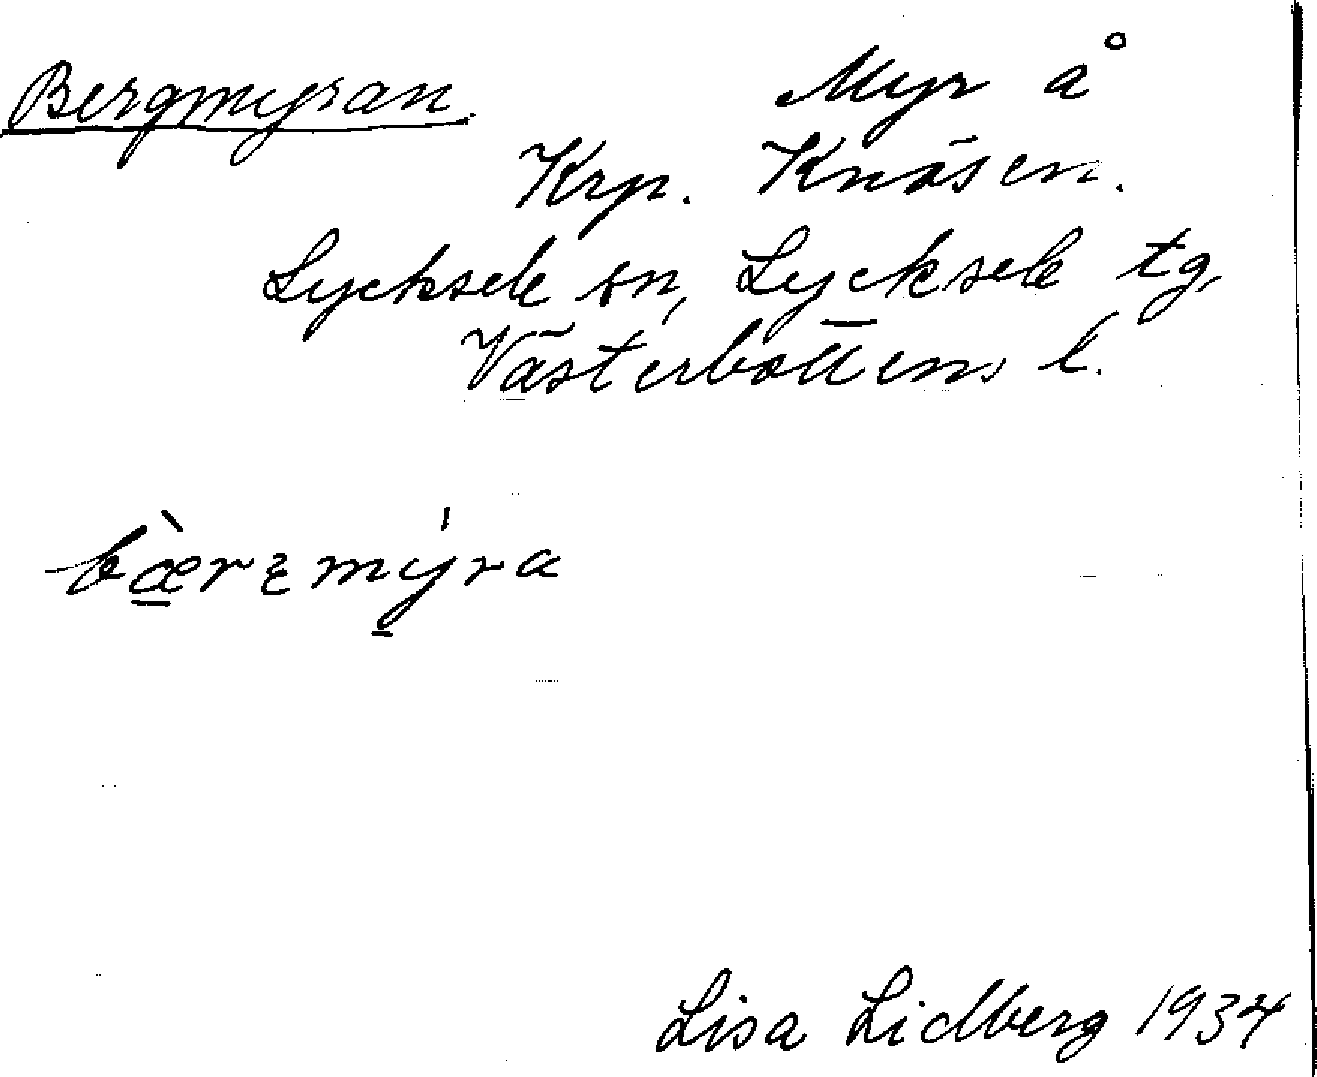 Bergmyran. Myr å
Krp. Knösen.
Lycksele sn, Lycksele tg,
Västerbottens l.
bæ̀rꜫmýra
Lisa Lidberg 1934